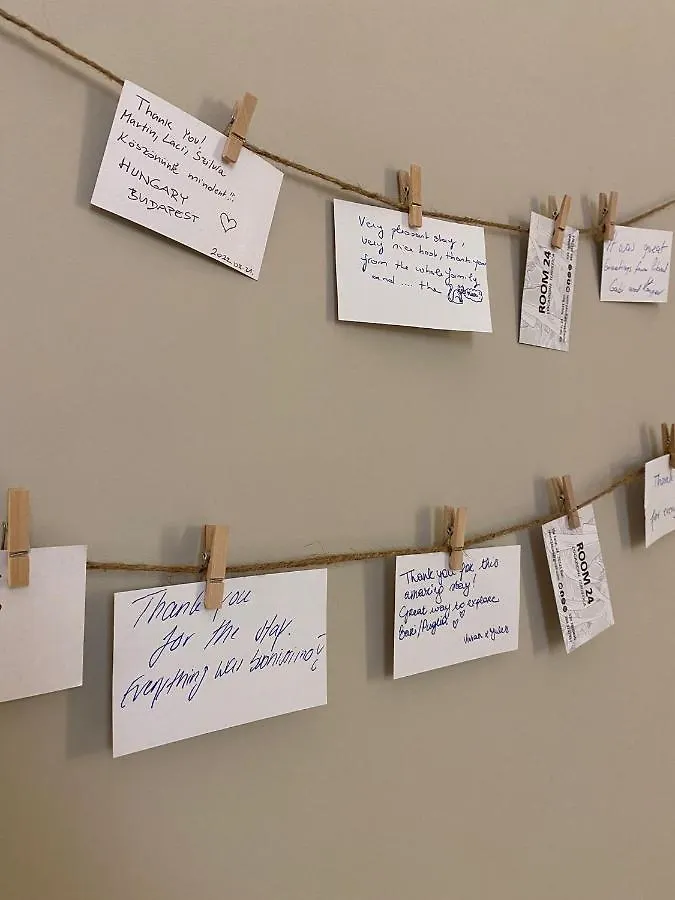 Thank you!
Martin, Laci, Szilvia
Köszönünk mindent!!
HUNGARY
BUDAPEST
Very pleasant stay,
very nice host, thank you
from the whole family
and .... the
ROOM 24
It was great
Greetings from
Gabi and
Thank you
for the stay.
Everything was bonissimo
Thank you for this
amazing stay!
Great way to explore
Bari/Puglia
ROOM 24
Thank
for